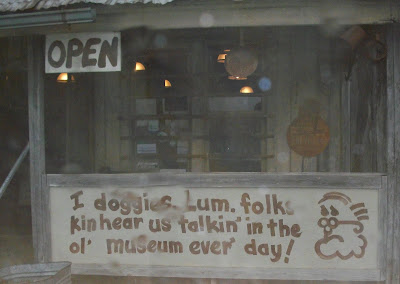 OPEN
I doggies. Lum. folks
kin hear us talkin' in the
ol' museum ever' day!